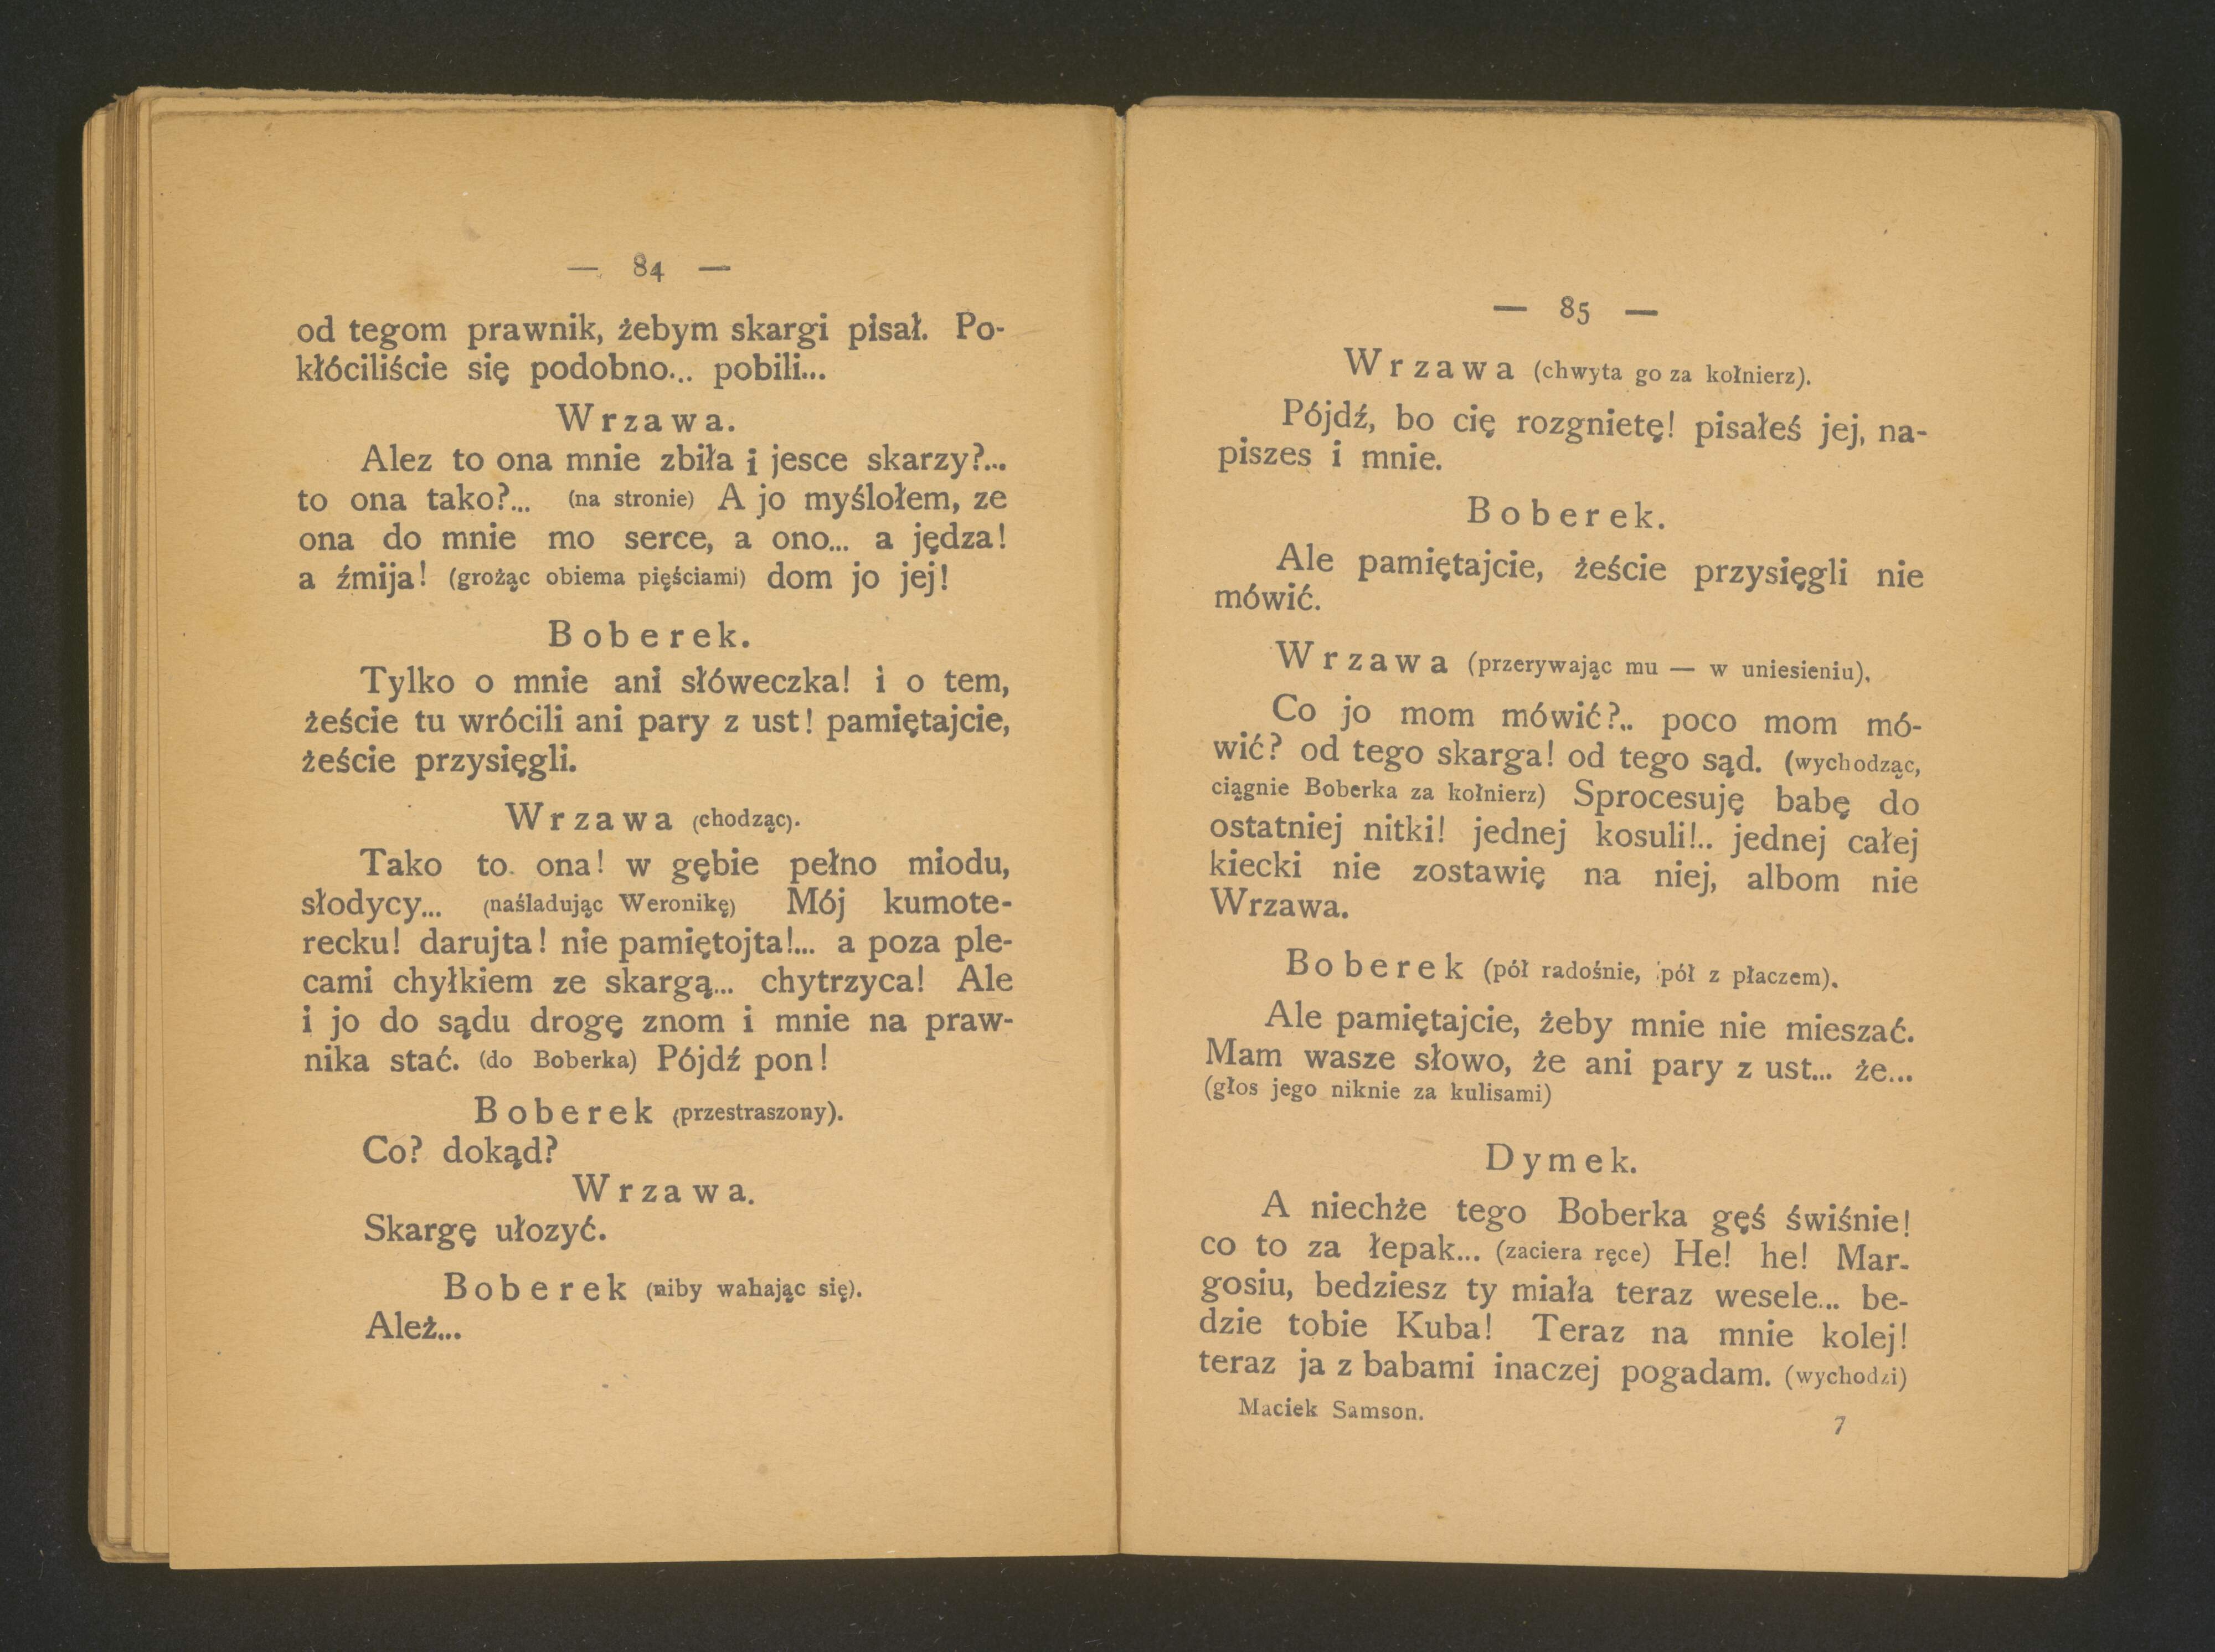 — 84 —
od tegom prawnik, żebym skargi pisał. Po-
kłóciliście się podobno... pobili...
Wrzawa.
Alez to ona mnie zbiła i jesce skarzy?...
to ona tako?... (na stronie) A jo myślołem, ze
ona do mnie mo serce, a ono... a jędza!
a źmija! (grożąc obiema pięściami) dom jo jej!
Boberek.
Tylko o mnie ani słóweczka! i o tem,
żeście tu wrócili ani pary z ust! pamiętajcie,
żeście przysięgli.
Wrzawa (chodząc).
Tako to ona! w gębie pełno miodu,
słodycy... (naśladując Weronikę) Mój kumote-
recku! darujta! nie pamiętojta!... a poza ple-
cami chyłkiem ze skargą... chytrzyca! Ale
i jo do sądu drogę znom i mnie na praw-
nika stać. (do Boberka) Pójdź pon!
Boberek (przestraszony).
Co? dokąd?
Wrzawa.
Skargę ułozyć.
Boberek (niby wahając się).
Ależ...
— 85 —
Wrzawa (chwyta go za kołnierz).
Pójdź, bo cię rozgnietę! pisałeś jej, na-
piszes i mnie.
Boberek.
Ale pamiętajcie, żeście przysięgli nie
mówić.
Wrzawa (przerywając mu — w uniesieniu).
Co jo mom mówić?.. poco mom mó-
wić? od tego skarga! od tego sąd. (wychodząc,
ciągnie Boberka za kołnierz) Sprocesuję babę do
ostatniej nitki! jednej kosuli!.. jednej całej
kiecki nie zostawię na niej, albom nie
Wrzawa.
Boberek (pół radośnie, pół z płaczem).
Ale pamiętajcie, żeby mnie nie mieszać.
Mam wasze słowo, że ani pary z ust... że...
(głos jego niknie za kulisami)
Dymek.
A niechże tego Boberka gęś świśnie!
co to za łepak... (zaciera ręce) He! he! Mar-
gosiu, bedziesz ty miała teraz wesele... be-
dzie tobie Kuba! Teraz na mnie kolej!
teraz ja z babami inaczej pogadam. (wychodzi)
Maciek Samson. 7